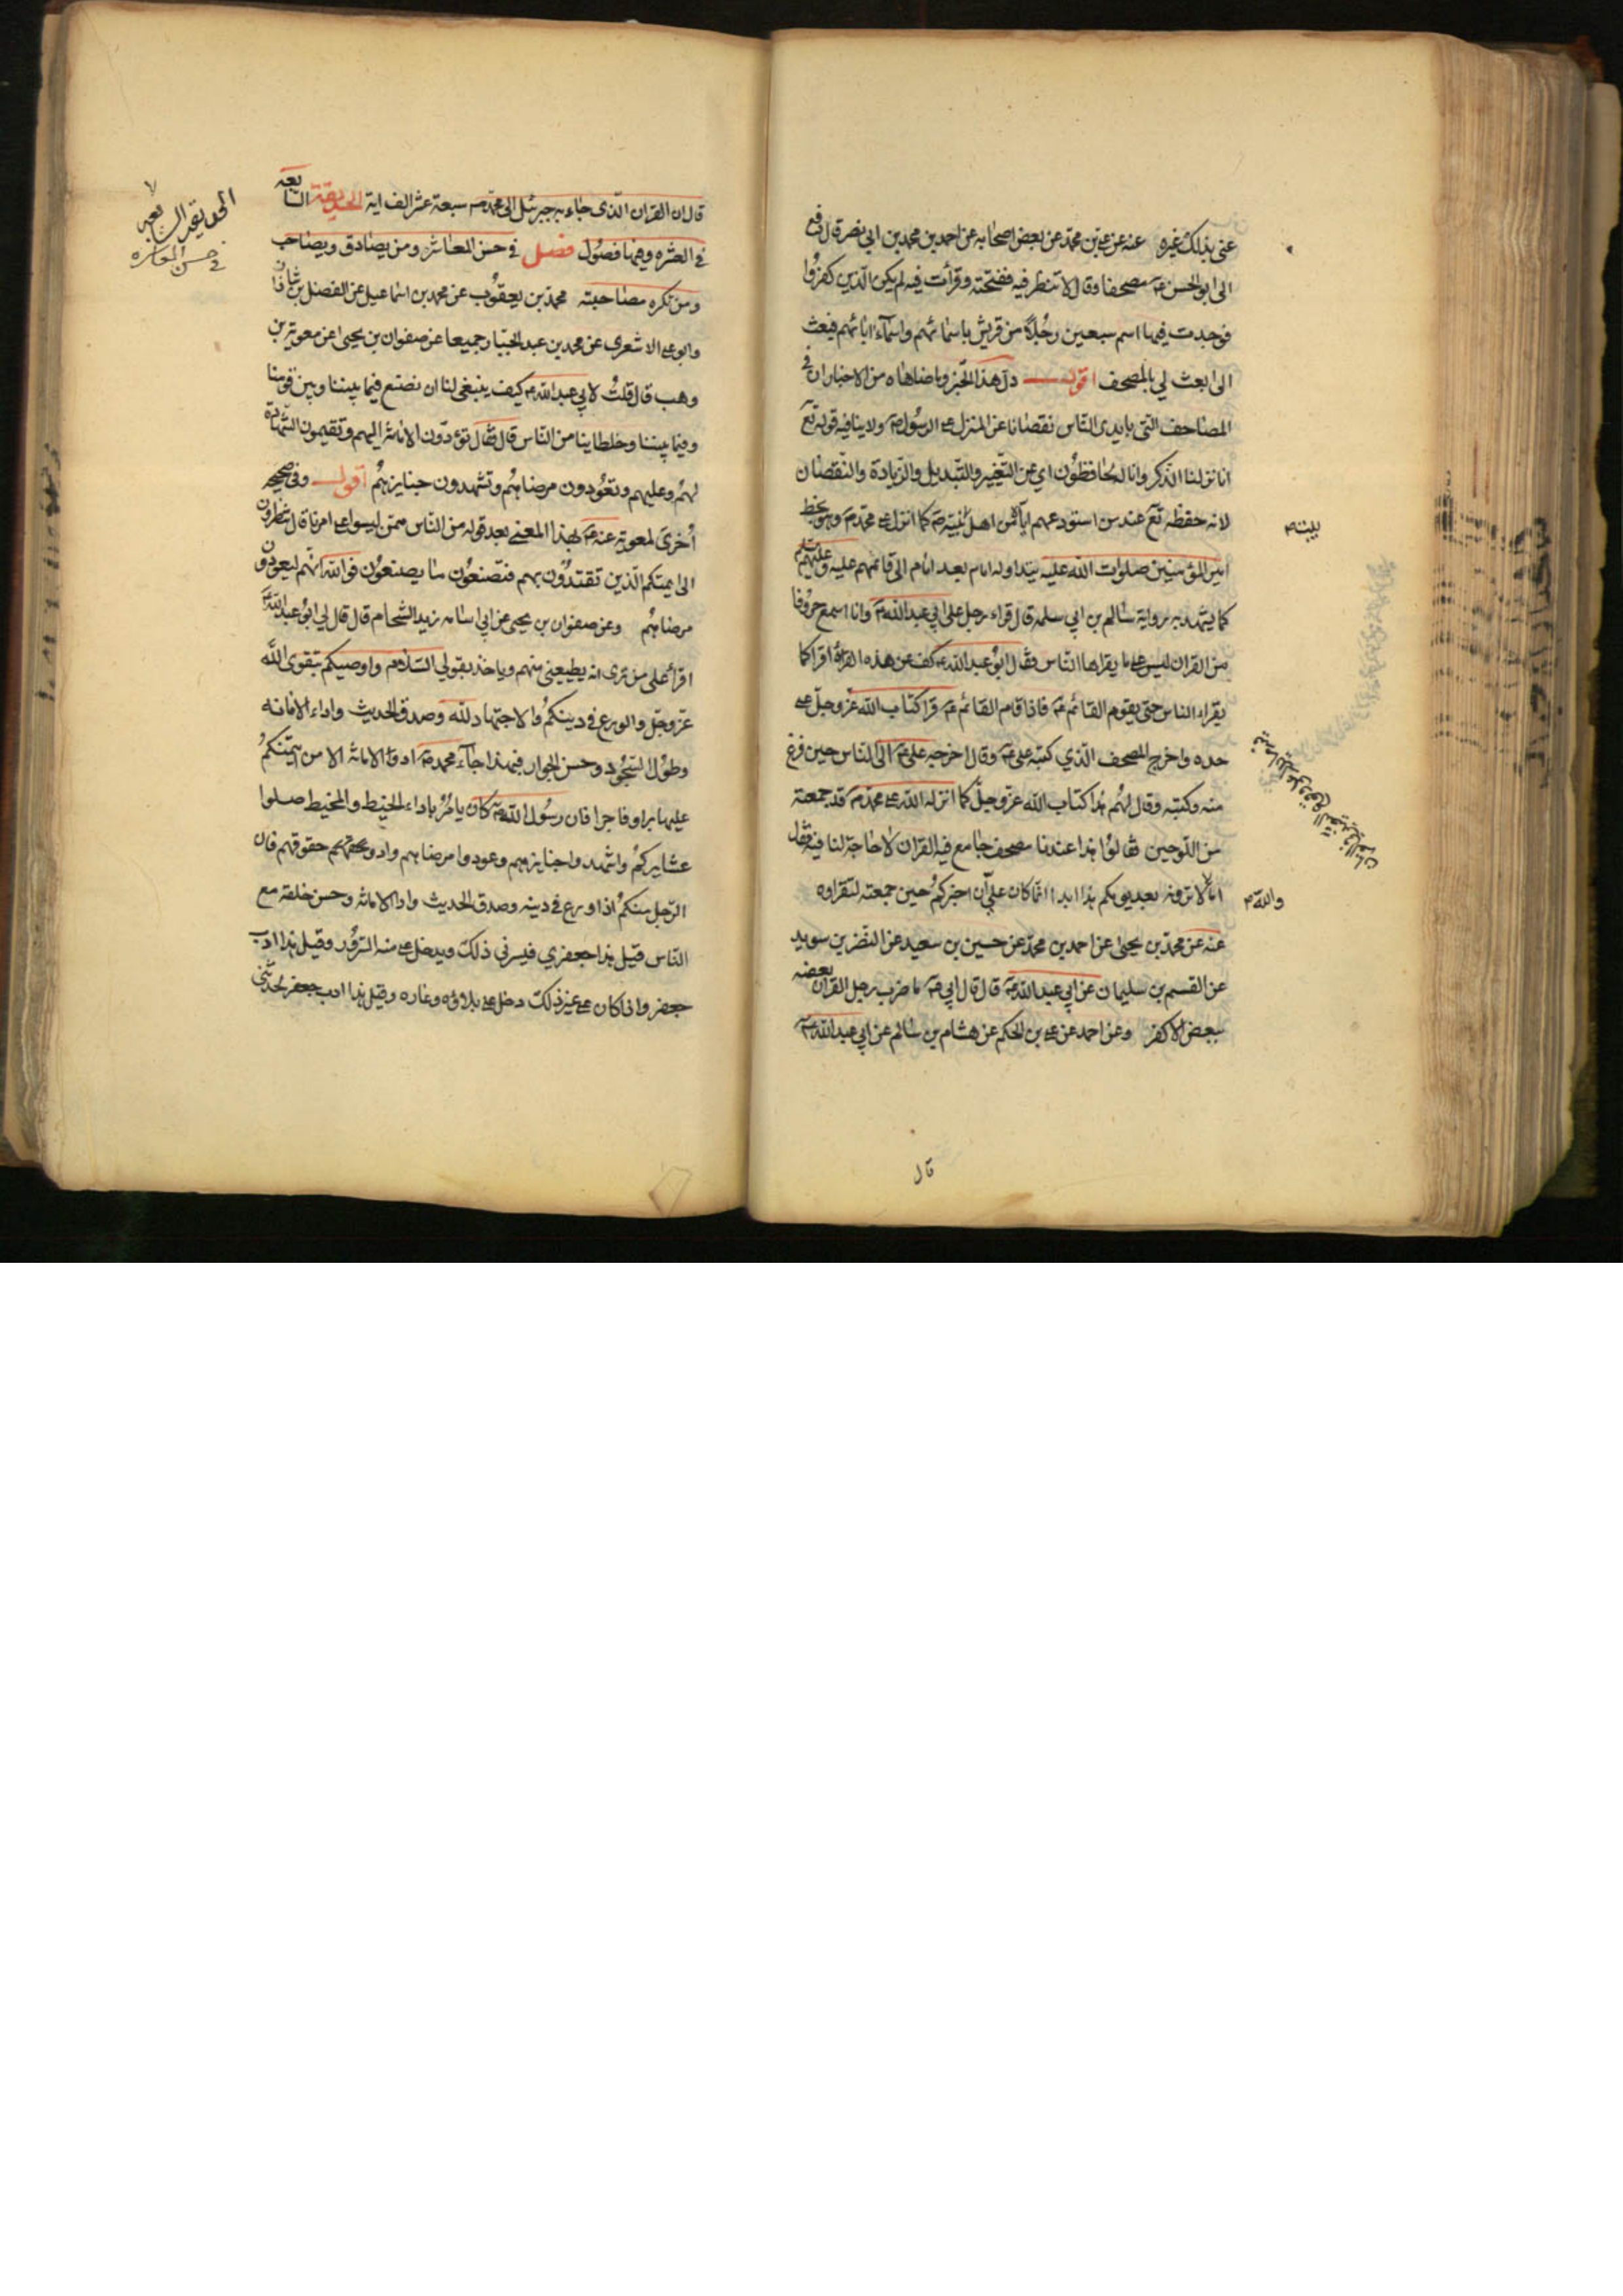 عنى بذلك غيره عنه عن علي بن محمد عن بعض اصحابه عن احمد بن محمد بن ابي نصر قال دفع
الى ابو الحسن ع مصحفا وقال لا تنظر فيه ففتحته وقرأت فيه لم يكن الذين كفروا
فوجدت فيها اسم سبعين رجلا من قريش باسمائهم واسماء ابائهم فبعث
الى ابعث لي بالمصحف اقول دل هذا الخبر وما ضاهاه من الاخبار ان في
المصاحف التي بايدى الناس نقصانا عن المنزل على الرسول ص ولا ينافيه قوله تع
انا نزلنا الذكر وانا له لحافظون اي عن التغيير والتبديل والزيادة والنقصان
لانه حفظه تع عند من استودعهم اياه من اهل بيته كما انزل على محمد ص وهو بخط
بيت
امير المؤمنين صلوات الله عليه يتداوله امام بعد امام الى قائمهم عليه وعليهم
كما يشهد به رواية سالم بن ابي سلمه قال قراء رجل على ابي عبد الله ع وانا اسمع حروفا
من القران ليس على ما يقراها الناس فقال ابو عبد الله ع كف عن هذه القرأة اقرا كما
يقراء الناس حتى يقوم القائم ع فاذا قام القائم ع قرا كتاب الله عز وجل على
حده واخرج المصحف الذي كتبه على ع وقال اخرجه على ع الى الناس حين فرغ
منه وكتبه وقال لهم هذا كتاب الله عز وجل كما انزله الله على محمد ص قد جمعته
من اللوحين فقالوا هذا عندنا مصحف جامع فيه القران لا حاجة لنا فيه فقال
اما لا ترونه بعد يومكم هذا ابدا انما كان علي ان اخبركم حين جمعته لتقراوه
والله
عنه عن محمد بن يحيى عن احمد بن محمد عن حسين بن سعيد عن النضر بن سويد
عن القسم بن سليمان عن ابي عبد الله ع قال قال ابي ع ما ضرب رجل القران بعضه
ببعض الا كفر وعن احمد عن علي بن الحكم عن هشام بن سالم عن ابي عبد الله ع
قال
قال ان القران الذى جاء به جبرئيل الى محمد ص سبعة عشر الف اية الحديقة السابعه
الحديقه السابعه
في حسن المعاشره
في العشره وفيها فصول فصل في حسن المعاشره ومن يصادق ويصاحب
ومن تكره مصاحبته محمد بن يعقوب عن محمد بن اسماعيل عن الفضل بن شاذان
وابو على الاشعرى عن محمد بن عبد الجبار جميعا عن صفوان بن يحيى عن معوية بن
وهب قال قلت لابي عبد الله ع كيف ينبغى لنا ان نصنع فيما بيننا وبين قومنا
وفيما بيننا وخلطاينا من الناس قال فقال تؤدون الامانة اليهم وتقيمون الشهادة
لهم وعليهم وتعودون مرضاهم وتشهدون جنايزهم اقول وفى صحيحه
اخرى لمعوية عنه ع بهذا المعنى بعد قوله من الناس ممن ليسوا على امرنا قال تنظرون
الى ايمتكم الذين تقتدون بهم فتصنعون ما يصنعون فوالله انهم ليعودون
مرضاهم وعن صفوان بن يحيى عن ابي اسامه زيد الشحام قال قال لي ابو عبد الله
اقرأ على من ترى انه يطيعنى منهم وياخذ بقولي السلام واوصيكم بتقوى الله
عز وجل والورع في دينكم والاجتهاد لله وصدق الحديث واداء الامانه
وطول السجود وحسن الجوار فبهذا جاء محمد ص ادوا الامانة الا من ايتمنكم
عليها برا وفاجرا فان رسول الله ص كان يامر باداء الخيط والمخيط صلوا
عشايركم واشهدوا جنايزهم وعودوا مرضاهم وادو حقوقهم فان
الرجل منكم اذا ورع في دينه وصدق الحديث وادا الامانة وحسن خلقه مع
الناس قيل هذا جعفري فيسرني ذلك ويدخل على منه السرور وقيل هذا ادب
جعفر واذا كان على غير ذلك دخل على بلاؤه وعاره وقيل هذا ادب جعفر لحدثني